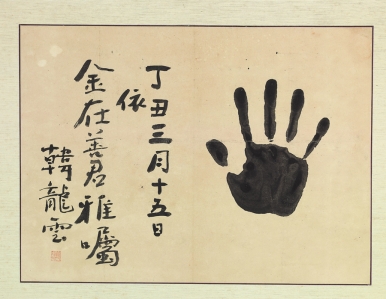 丁丑三月十五日
依
金在善君雅囑
韓龍雲